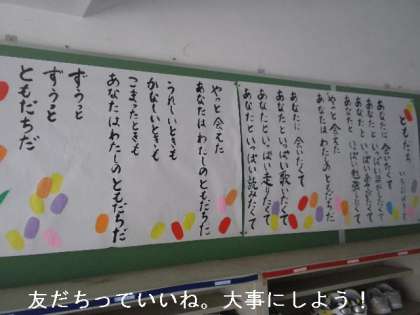 ともだち
あなたに 会いたくて
やっと 会えた
あなたはわたしの ともだちだ
あなたに 会いたくて
あなたと いっぱい 歌いたくて
あなたと いっぱい 走りたくて
あなたと いっぱい 読みたくて
やっと 会えた
あなたは わたしの ともだちだ
うれしいときも
かなしいときも
こまったときも
あなたは わたしの ともだちだ
ずうっと
ずうっと
ともだちだ
友だちっていいね。大事にしよう！